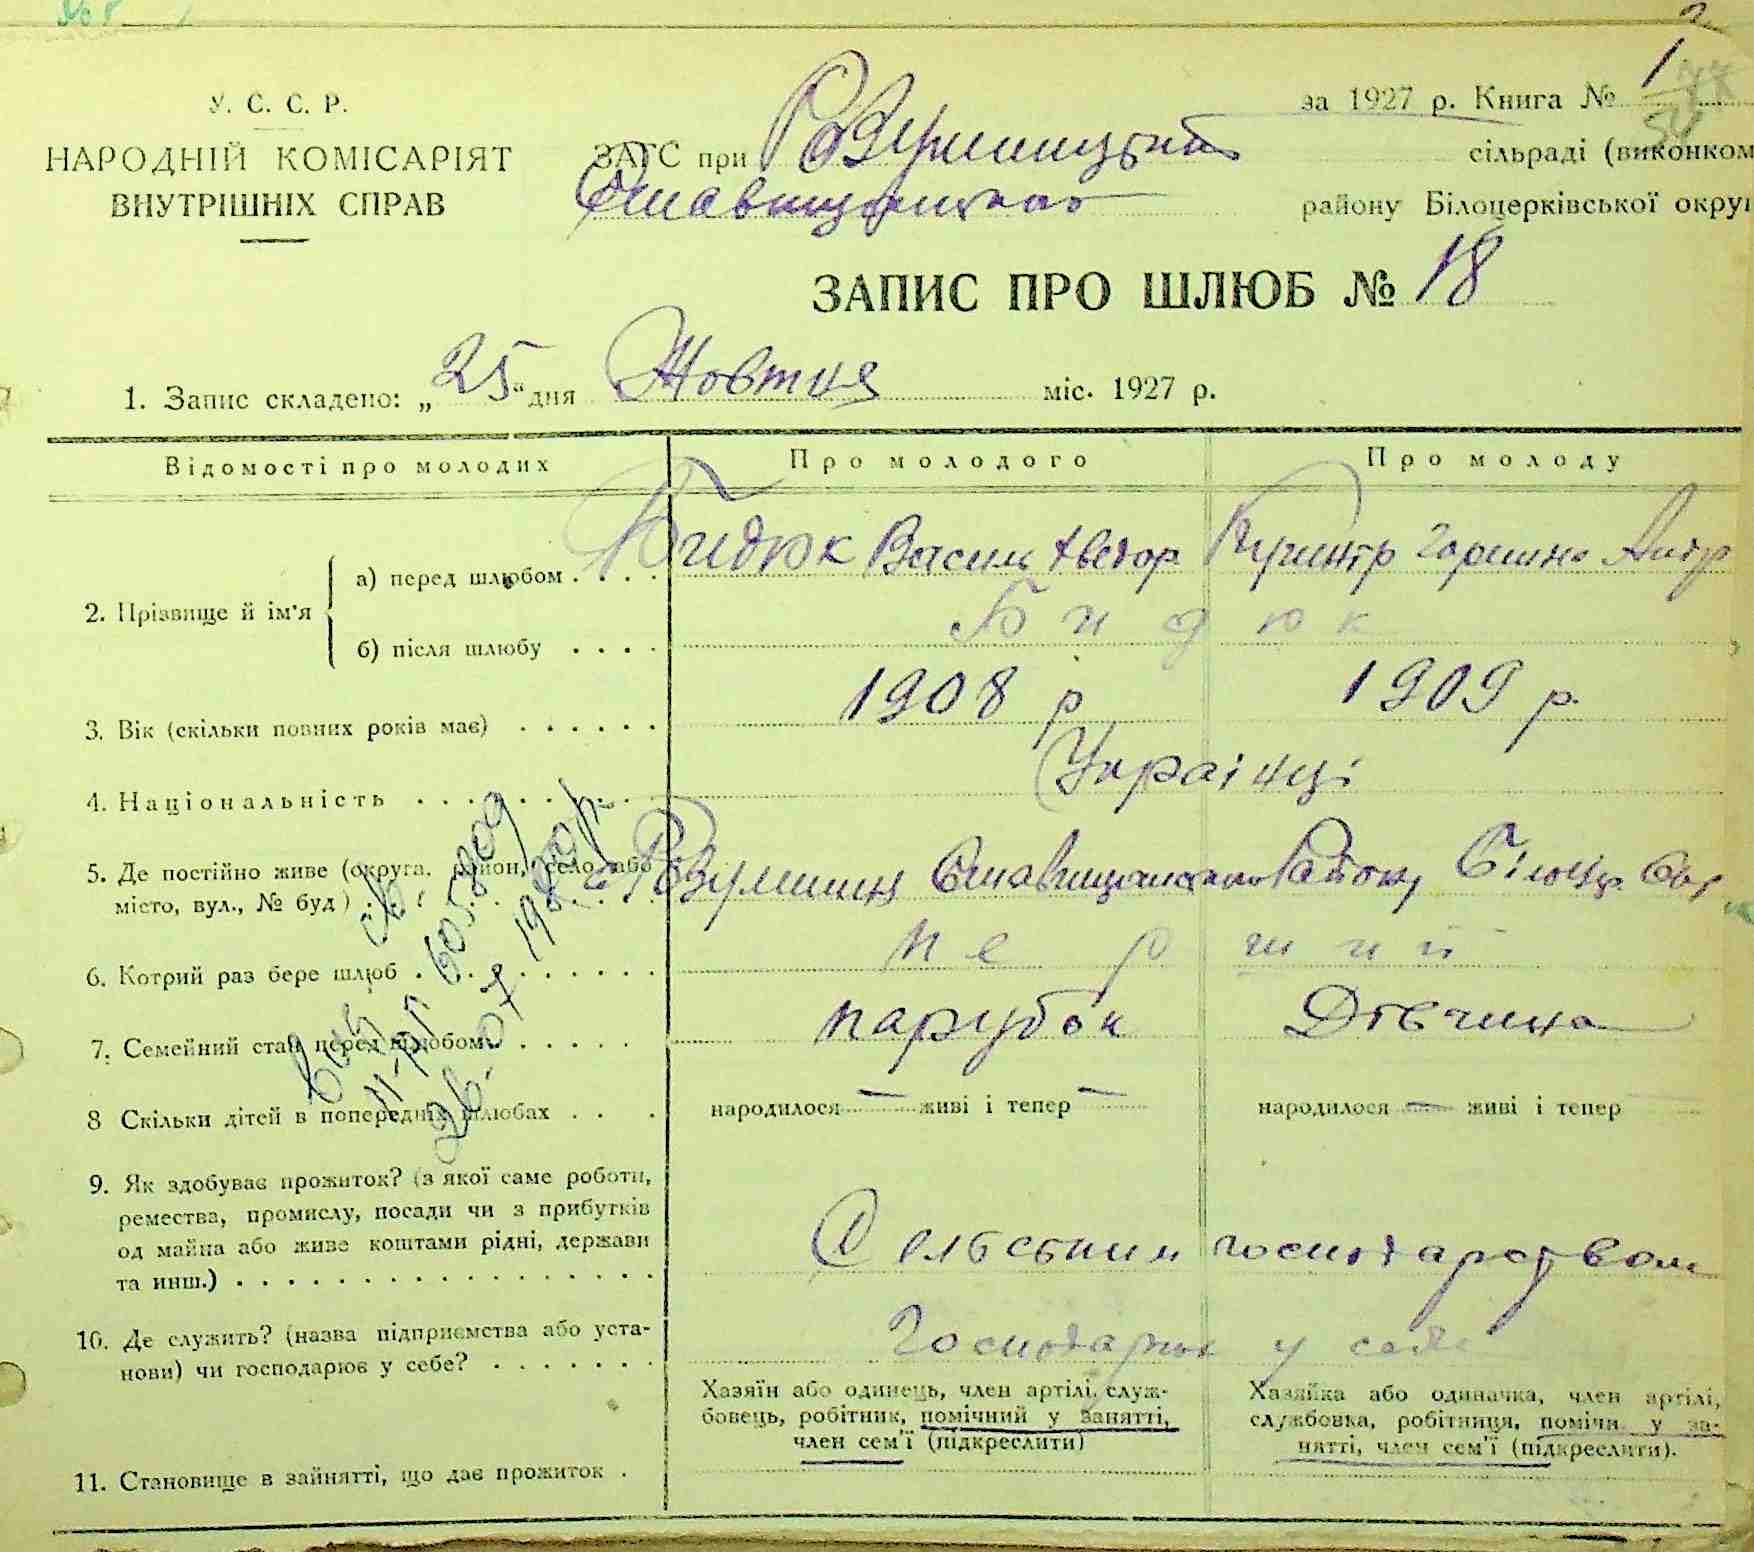 У. С. С. Р.
НАРОДНІЙ КОМІСАРІЯТ
ВНУТРІШНІХ СПРАВ
за 1927 р. Книга № 1
ЗАГС при сільраді (виконком
району Білоцерківської округ
ЗАПИС ПРО ШЛЮБ № 18
1. Запис складено: „25“ дня Жовтня міс. 1927 р.
Відомості про молодих Про молодого Про молоду
2. Прізвище й ім'я
а) перед шлюбом . . . . Бидюк Василь Хведор
б) після шлюбу . . . . Бидюк
3. Вік (скільки повних років має) . . . . . . 1908 р 1909 р.
4. Національність . . . . . . . . Українці
5. Де постійно живе (округа, район, село або
місто, вул., № буд)
6. Котрий раз бере шлюб . . . . . . . . . перший
7. Семейний стан перед шлюбом . . . . . парубок Дівчина
8 Скільки дітей в попередніх шлюбах . . . народилося — живі і тепер — народилося — живі і тепер
9. Як здобуває прожиток? (з якої саме роботи,
ремества, промислу, посади чи з прибутків
од майна або живе коштами рідні, держави
та инш.) . . . . . . . . . . . . . . . . . Сельским господарством
10. Де служить? (назва підприємства або уста-
нови) чи господарює у себе? . . . . . . . у себе
Хазяїн або одинець, член артілі, служ-
бовець, робітник, помічний у занятті,
член сем'ї (підкреслити)
Хазяйка або одиначка, член артілі,
службовка, робітниця, помічн. у за-
нятті, член сем'ї (підкреслити).
11. Становище в зайнятті, що дає прожиток .